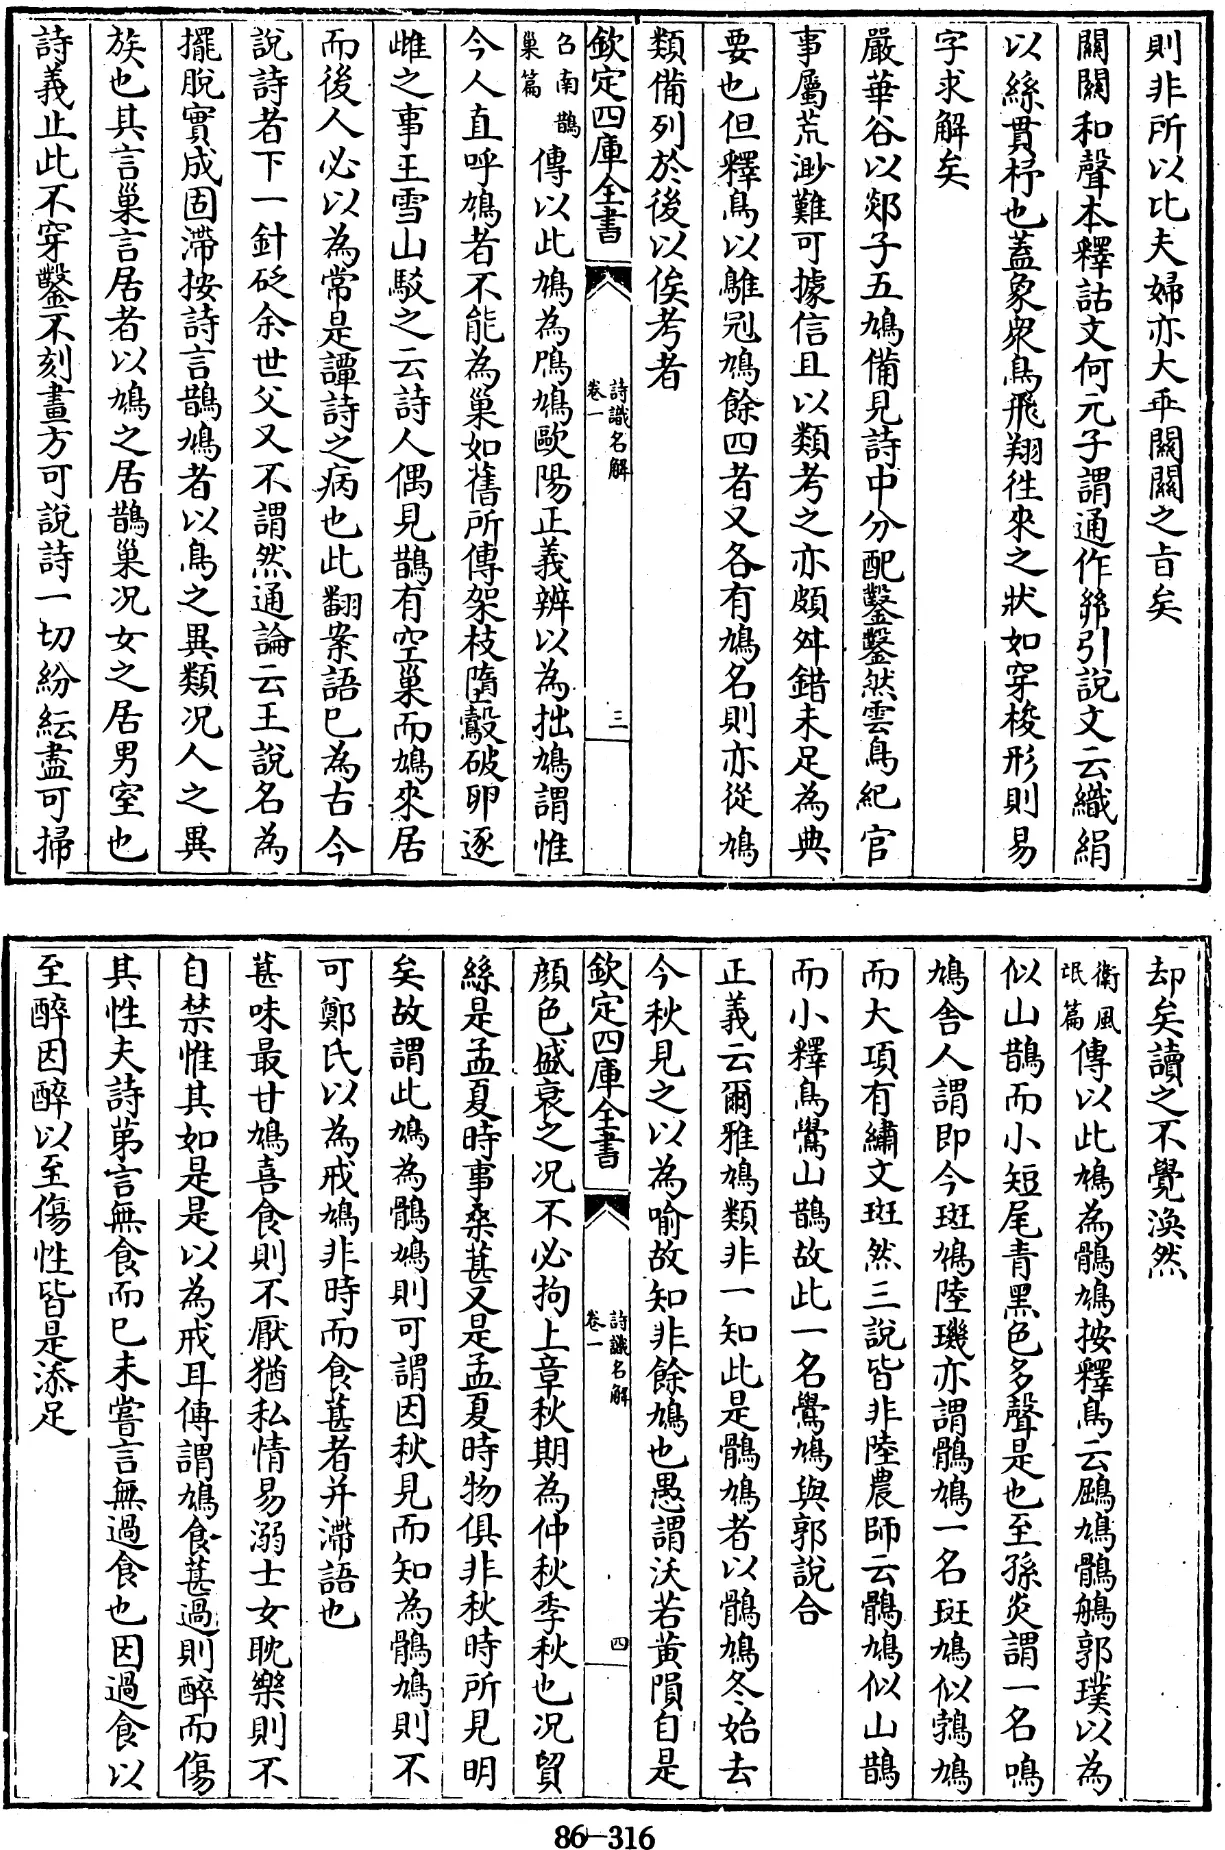 則非所以比夫婦亦大乖關關之旨矣
關關和聲本釋詁文何元子謂通作𢇇引說文云織絹
以絲貫杼也蓋象衆鳥飛翔徃來之狀如穿梭形則易
字求解矣
嚴華谷以郯子五鳩備見詩中分配鑿鑿然雲鳥紀官
事屬荒渺難可據信且以類考之亦頗舛錯未足為典
要也但釋鳥以鵻剋鳩餘四者又各有鳩名則亦從鳩
類備列於後以俟考者
欽定四庫全書
詩識名解
卷一
三
召南鵲
巢篇
傳以此鳩為鳲鳩歐陽正義辨以為拙鳩謂惟
今人直呼鳩者不能為巢如舊所傳架枝墮鷇破卵逐
雌之事王雪山駁之云詩人偶見鵲有空巢而鳩來居
而後人必以為常是譚詩之病也此翻案語已為古今
說詩者下一針砭余世父又不謂然通論云王說名為
擺脫實成固滯按詩言鵲鳩者以鳥之異類况人之異
族也其言巢言居者以鳩之居鵲巢况女之居男室也
詩義止此不穿鑿不刻畫方可說詩一切紛紜盡可掃
却矣讀之不覺渙然
衛風
氓篇
傳以此鳩為鶻鳩按釋鳥云鶌鳩鶻鵃郭璞以為
似山鵲而小短尾青黑色多聲是也至孫炎謂一名鳴
鳩舍人謂即今斑鳩陸璣亦謂鶻鳩一名斑鳩似鵓鳩
而大項有繡文斑然三說皆非陸農師云鶻鳩似山鵲
而小釋鳥鷽山鵲故此一名鷽鳩與郭說合
正義云爾雅鳩類非一知此是鶻鳩者以鶻鳩冬始去
今秋見之以為喻故知非餘鳩也愚謂沃若黃隕自是
欽定四庫全書
詩識名解
卷一
四
顔色盛衰之况不必拘上章秋期為仲秋季秋也况貿
絲是孟夏時事桑葚又是孟夏時物俱非秋時所見明
矣故謂此鳩為鶻鳩則可謂因秋見而知為鶻鳩則不
可鄭氏以為戒鳩非時而食葚者并滯語也
葚味最甘鳩喜食則不厭猶私情易溺士女耽樂則不
自禁惟其如是是以為戒耳傳謂鳩食葚過則醉而傷
其性夫詩第言無食而已未嘗言無過食也因過食以
至醉因醉以至傷性皆是添足
86-316